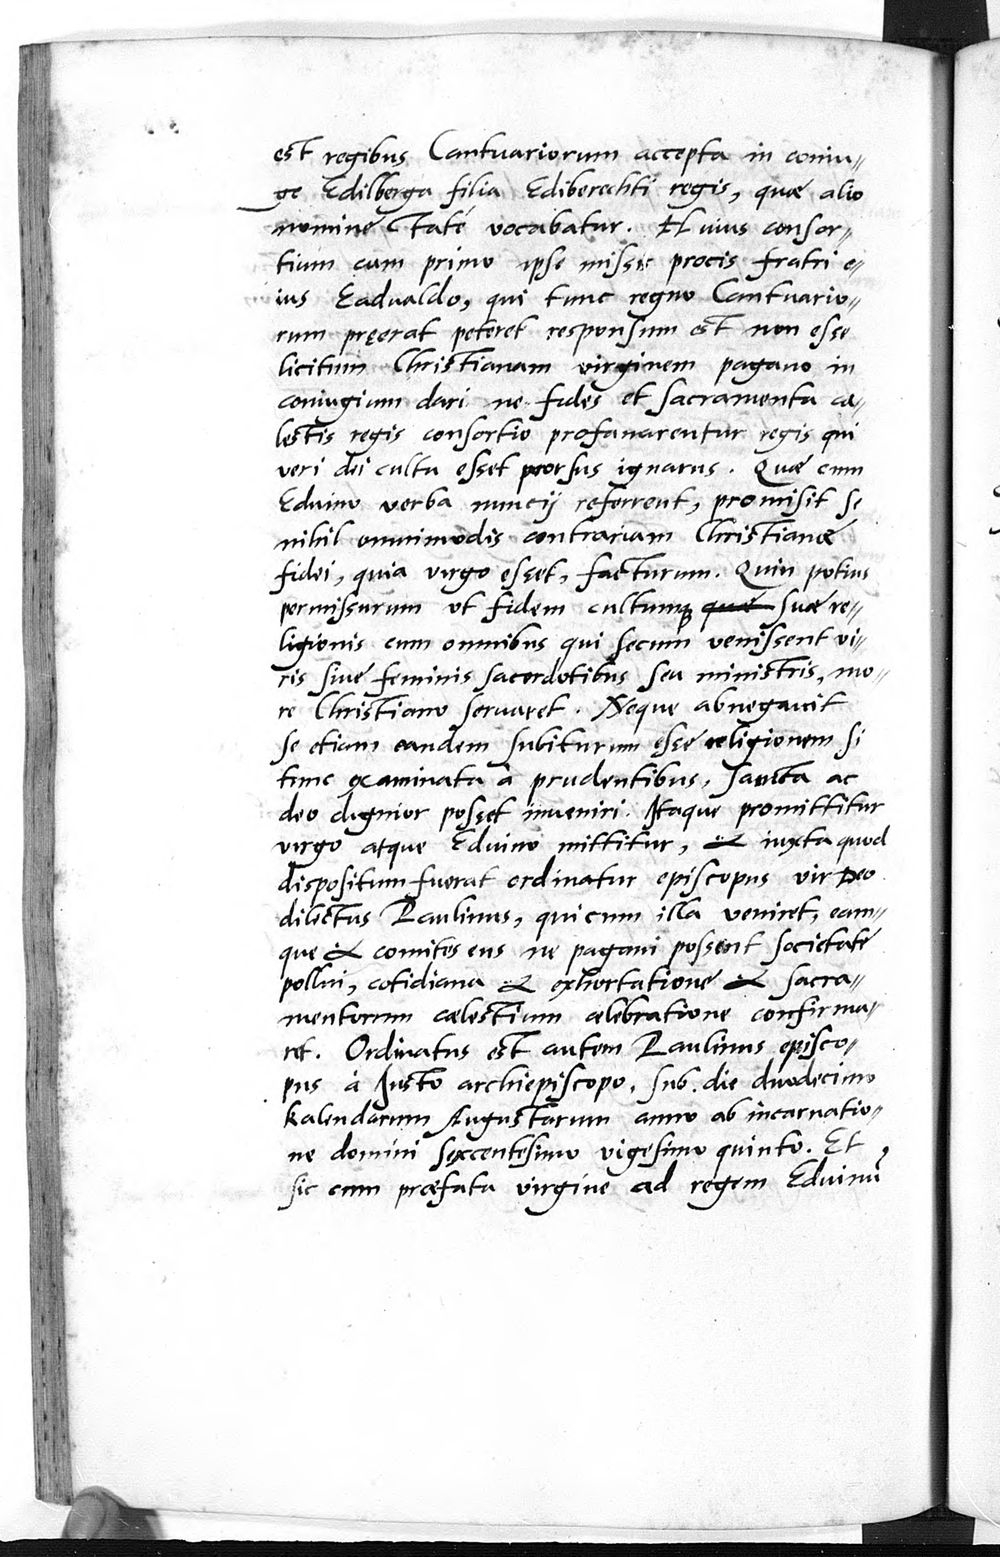 est regibus Cantuariorum accepta in coniu=
ge Edilberga filia Ediberechti regis, quæ alio
nomine Tate vocabatur. Huius consor=
tium cum primo ipse missis procis fratri e=
ius Eadualdo, qui tunc regno Cantuario=
rum pręerat peteret responsum est non esse
licitum Christianam virginem pagano in
coniugium dari ne fides et sacramenta cæ=
lestis regis consortio profanarentur regis qui
veri dei cultu esset prorsus ignarus. Quæ cum
Eduino verba nuncij referrent, promisit se
nihil omnimodis contrariam Christianæ
fidei, quia virgo esset, facturum. Quin potius
permissurum ut fidem cultumq; quæ suæ re=
ligionis cum omnibus qui secum venissent vi=
ris sive feminis sacerdotibus seu ministris, mo=
re Christiano servaret. Neque abnegavit
se etiam eandem subiturum esse religionem si
tunc examinata à prudentibus, sancta ac
deo dignior posset inveniri. Itaque promittitur
virgo atque Eduino mittitur, & iuxta quod
dispositum fuerat ordinatur episcopus vir Deo
dilectus Paulinus, qui cum illa veniret, eam=
que & comites eius ne pagani possent societate
pollui, cotidiana & exhortatione & sacra=
mentorum cælestium celebratione confirma=
ret. Ordinatus est autem Paulinus episco=
pus à Justo archiepiscopo, sub die duodecimo
kalendarum Augustarum anno ab incarnatio=
ne domini sexcentesimo vigesimo quinto. Et
sic cum præfata virgine ad regem Eduinū